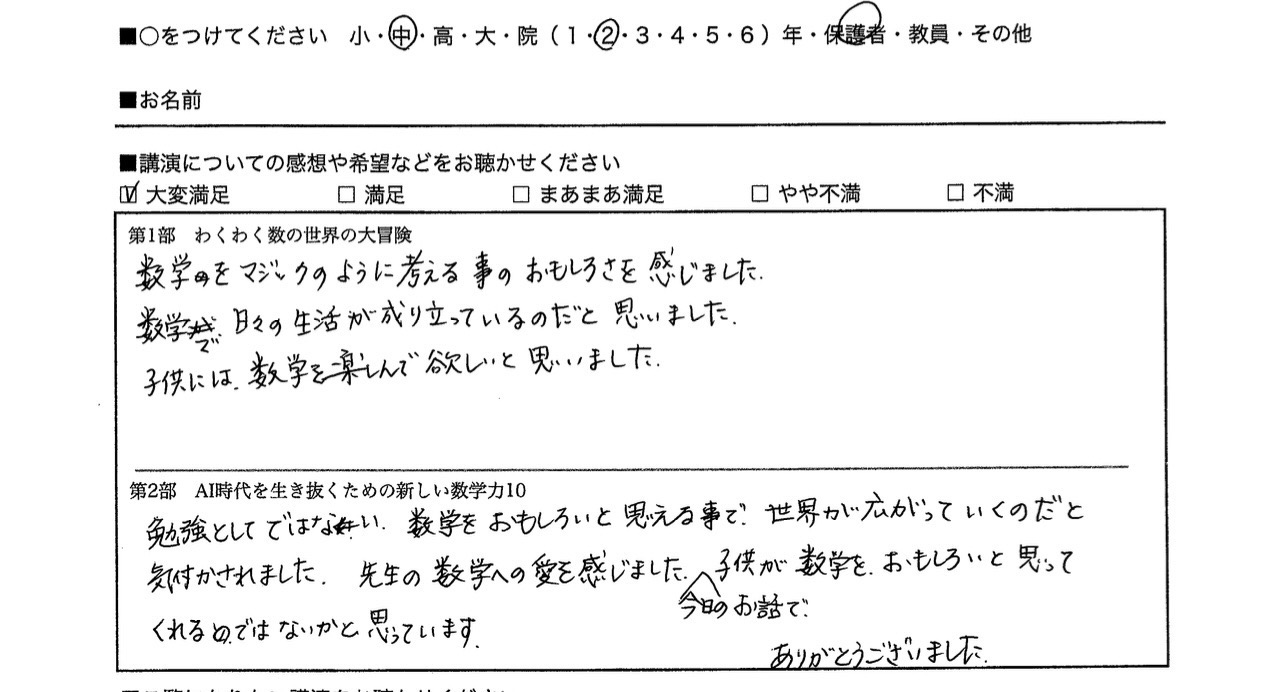 ■○をつけてください 小・中・高・大・院（1・2・3・4・5・6）年・保護者・教員・その他
■お名前
■講演についての感想や希望などをお聴かせください
☑ 大変満足 □ 満足 □ まあまあ満足 □ やや不満 □ 不満
第1部 わくわく数の世界の大冒険
数学をマジックのように考える事のおもしろさを感じました.
数学で日々の生活が成り立っているのだと思いました.
子供には、数学を楽しんで欲しいと思いました.
第2部 AI時代を生き抜くための新しい数学力10
勉強としてではない、数学をおもしろいと思える事で、世界が広がっていくのだと
気付かされました. 先生の数学への愛を感じました. 子供が数学を、おもしろいと思って
今日のお話で、
くれるのではないかと思っています.
ありがとうございました.